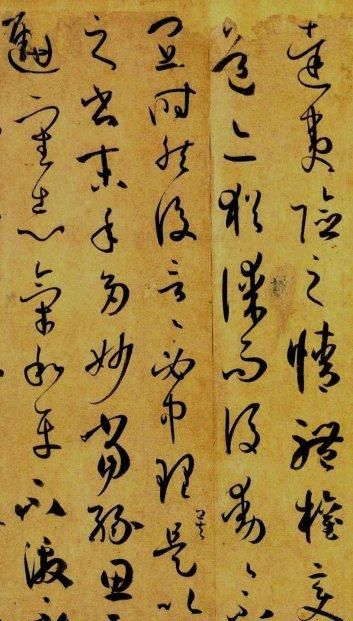 達夷險之情體權變
道亦猶謀而後動〻不
宜時然後言〻必中理矣是以
之書末年多妙當緣思
通審志氣和平不激